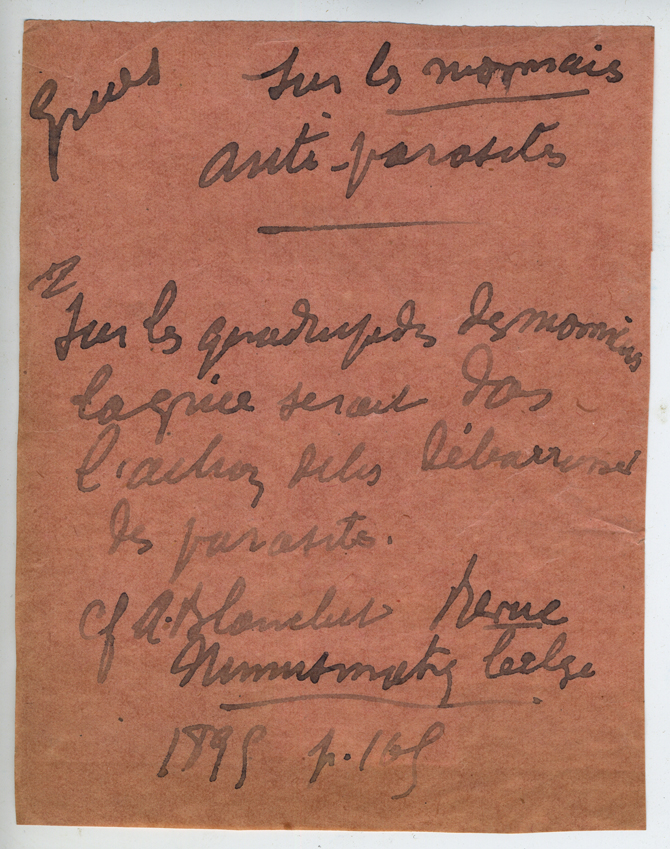 Grues
Sur les monnaies
anti-parasites
Sur les quadrupedes des monnaies
la grue serait dans
l'action de les débarrasser
des parasites.
cf A. Blanchet Revue
Numismatiq belge
1895 p. 165